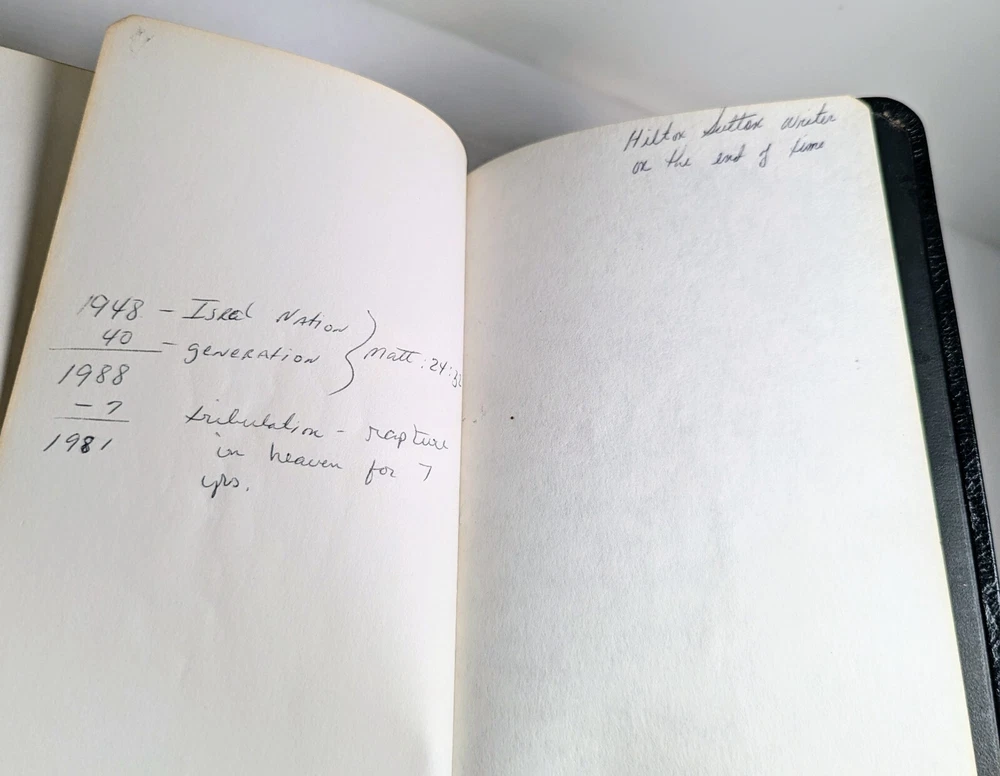 1948 - Isral Nation
40 - generation } Matt : 24:32
1988
- 7 tribulation - rapture
1981 in heaven for 7
yrs.
Hilton Sutton writer
on the end of time